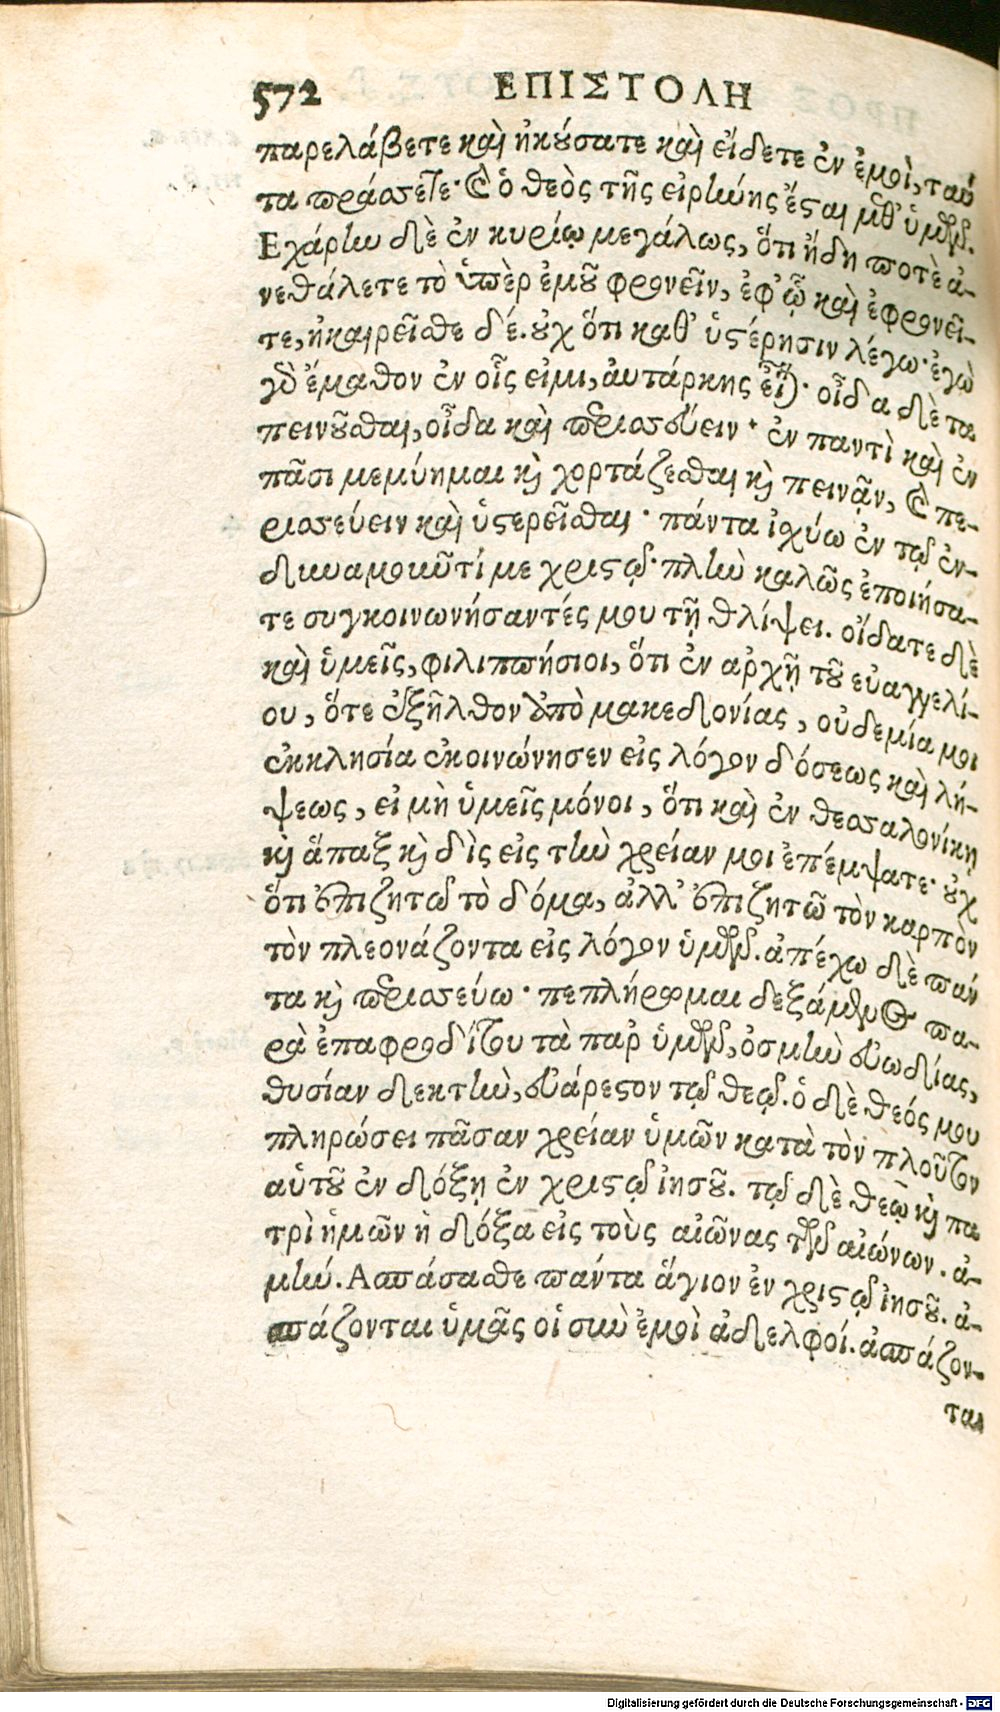 572 ΕΠΙΣΤΟΛΗ
παρελάβετε καὶ ἠκούσατε καὶ εἴδετε ἐν ἐμοὶ, ταῦ
τα πράσσετε· καὶ ὁ θεὸς τῆς εἰρήνης ἔσται μεθ' ὑμῶν.
Εχάρην δὲ ἐν κυρίῳ μεγάλως, ὅτι ἤδη ποτὲ ἀ-
νεθάλετε τὸ ὑπὲρ ἐμοῦ φρονεῖν, ἐφ' ᾧ καὶ ἐφρονεῖ-
τε, ἠκαιρεῖσθε δέ. οὐχ ὅτι καθ' ὑστέρησιν λέγω· ἐγὼ
γὰρ ἔμαθον ἐν οἷς εἰμι, αὐτάρκης εἶναι. οἶδα δὲ τα
πεινοῦσθαι, οἶδα καὶ περισσεύειν· ἐν παντὶ καὶ ἐν
πᾶσι μεμύημαι καὶ χορτάζεσθαι καὶ πεινᾷν, καὶ πε-
ρισσεύειν καὶ ὑστερεῖσθαι· πάντα ἰσχύω ἐν τῷ ἐν-
δυναμοῦντί με χριστῷ· πλὴν καλῶς ἐποιήσα-
τε συγκοινωνήσαντές μου τῇ θλίψει. οἴδατε δὲ
καὶ ὑμεῖς, φιλιππήσιοι, ὅτι ἐν ἀρχῇ τοῦ εὐαγγελί-
ου, ὅτε ἐξῆλθον ἀπὸ μακεδονίας, οὐδεμία μοι
ἐκκλησία ἐκοινώνησεν εἰς λόγον δόσεως καὶ λή-
ψεως, εἰ μὴ ὑμεῖς μόνοι, ὅτι καὶ ἐν θεσσαλονίκῃ
καὶ ἅπαξ καὶ δὶς εἰς τὴν χρείαν μοι ἐπέμψατε· οὐχ
ὅτι ἐπιζητῶ τὸ δόμα, ἀλλ' ἐπιζητῶ τὸν καρπὸν
τὸν πλεονάζοντα εἰς λόγον ὑμῶν. ἀπέχω δὲ πάν
τα καὶ περισσεύω· πεπλήρωμαι δεξάμενος πα-
ρὰ ἐπαφροδίτου τὰ παρ' ὑμῶν, ὀσμὴν εὐωδίας,
θυσίαν δεκτὴν, εὐάρεστον τῷ θεῷ. ὁ δὲ θεός μου
πληρώσει πᾶσαν χρείαν ὑμῶν κατὰ τὸν πλοῦτον
αὐτοῦ ἐν δόξῃ ἐν χριστῷ ἰησοῦ. τῷ δὲ θεῷ καὶ πα
τρὶ ἡμῶν ἡ δόξα εἰς τοὺς αἰῶνας τῶν αἰώνων. ἀ-
μήν. Ασπάσασθε πάντα ἅγιον ἐν χριστῷ ἰησοῦ. ἀ-
σπάζονται ὑμᾶς οἱ σὺν ἐμοὶ ἀδελφοί. ἀσπάζον-
ται
Digitalisierung gefördert durch die Deutsche Forschungsgemeinschaft - DFG